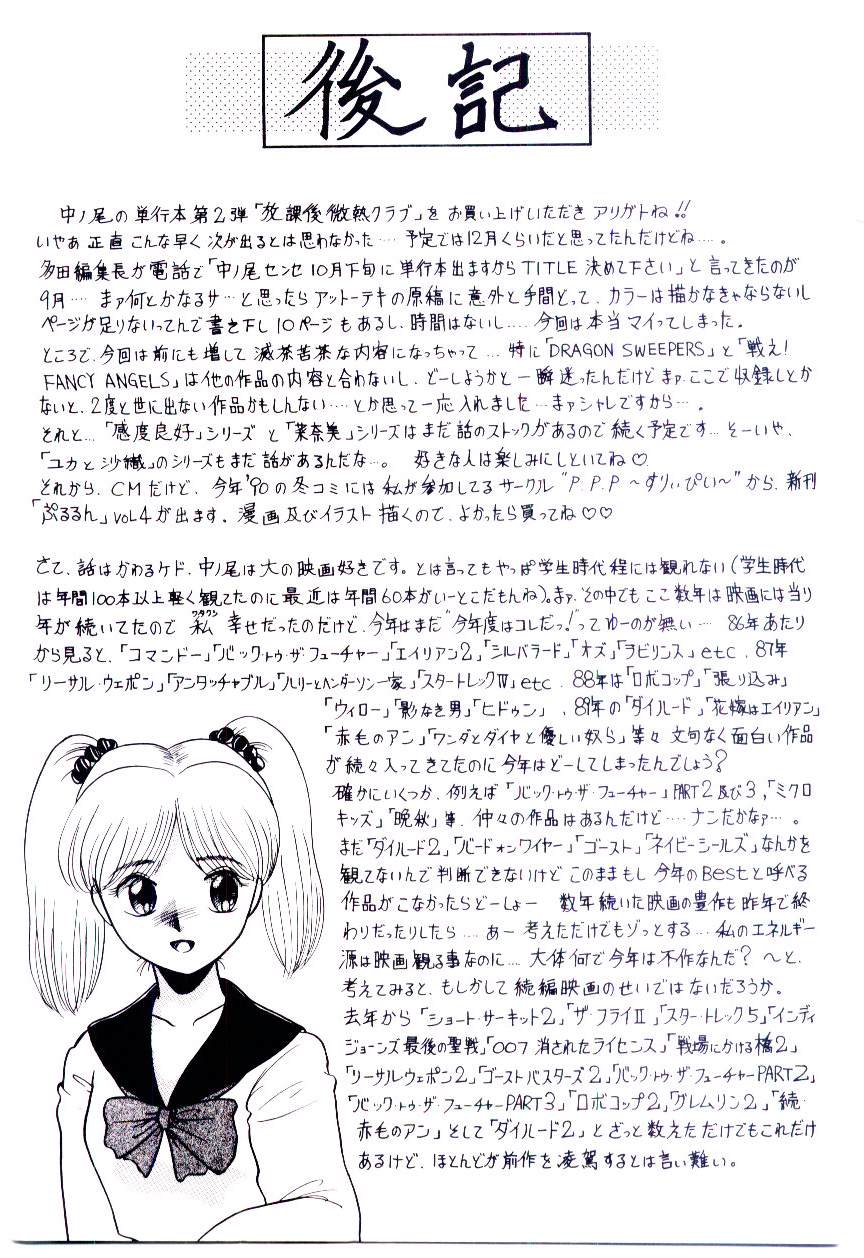 後記
中ノ尾の単行本第2弾「放課後微熱クラブ」をお買い上げいただきアリガトね!!
いやあ正直こんな早く次が出るとは思わなかった‥‥予定では12月くらいだと思ってたんだけどね‥‥。
多田編集長が電話で「中ノ尾センセ10月下旬に単行本出ますからTITLE決めて下さい」と言ってきたのが
9月‥‥まァ何とかなるサ‥と思ったらアットーテキの原稿に意外と手間どって、カラーは描かなきゃならないし
ページが足りないってんで書き下し10ページもあるし、時間はないし‥‥今回は本当マイってしまった。
ところで、今回は前にも増して滅茶苦茶な内容になっちゃって…特に「DRAGON SWEEPERS」と「戦え!
FANCY ANGELS」は他の作品の内容と合わないし、どーしようかと一瞬迷ったんだけどまァここで収録しとか
ないと、2度と世に出ない作品かもしんない‥‥とか思って一応入れました…まァシャレですから‥。
それと…「感度良好」シリーズと「茉奈美」シリーズはまだ話のストックがあるので続く予定です…そーいや、
「ユカと沙織」のシリーズもまだ話があるんだな…。 好きな人は楽しみにしといてね♡
それから、CMだけど、今年'90の冬コミには私が参加してるサークル"P.P.P～すりぃぴぃ～"から、新刊
「ぷるるん」VOL4が出ます。漫画及びイラスト描くので、よかったら買ってね♡♡
さて、話はかわるケド、中ノ尾は大の映画好きです。とは言ってもやっぱ学生時代程には観れない(学生時代
は年間100本以上軽く観てたのに最近は年間60本がいーとこだもんね)。まァ、その中でもここ数年は映画には当り
年が続いてたので私ワタクシ幸せだったのだけど、今年はまだ"今年度はコレだっ!"ってゆーのが無い… 86年あたり
から見ると、「コマンドー」「バック・トゥ・ザ・フューチャー」「エイリアン2」「シルバラード」「オズ」「ラビリンス」etc、87年
「リーサル・ウェポン」「アンタッチャブル」「ハリーとヘンダーソン一家」「スタートレックⅣ」etc、88年は「ロボコップ」「張り込み」
「ウィロー」「影なき男」「ヒドゥン」、89年の「ダイハード」「花嫁はエイリアン」
「赤毛のアン」「ワンダとダイヤと優しい奴ら」等々文句なく面白い作品
が続々入ってきてたのに今年はどーしてしまったんでしょう?
確かにいくつか、例えば「バック・トゥ・ザ・フューチャー」PART2及び3,「ミクロ
キッズ」「晩秋」等、仲々の作品はあるんだけど‥‥ナンだかなァ…。
まだ「ダイハード2」「バードオンワイヤー」「ゴースト」「ネイビーシールズ」なんかを
観てないんで判断できないけどこのままもし今年のBestと呼べる
作品がこなかったらどーしょー 数年続いた映画の豊作も昨年で終
わりだったりしたら‥‥あー考えただけでもゾっとする…私のエネルギー
源は映画観る事なのに‥‥大体何で今年は不作なんだ?～と、
考えてみると、もしかして続編映画のせいではないだろうか。
去年から「ショート・サーキット2」「ザ・フライⅡ」「スター・トレック5」「インディ
ジョーンズ最後の聖戦」「007消されたライセンス」「戦場にかける橋2」
「リーサルウェポン2」「ゴーストバスターズ2」「バック・トゥ・ザ・フューチャーPART2」
「バック・トゥ・ザ・フューチャーPART3」「ロボコップ2」「グレムリン2」「続・
赤毛のアン」そして「ダイハード2」とざっと数えただけでもこれだけ
あるけど、ほとんどが前作を凌駕するとは言い難い。